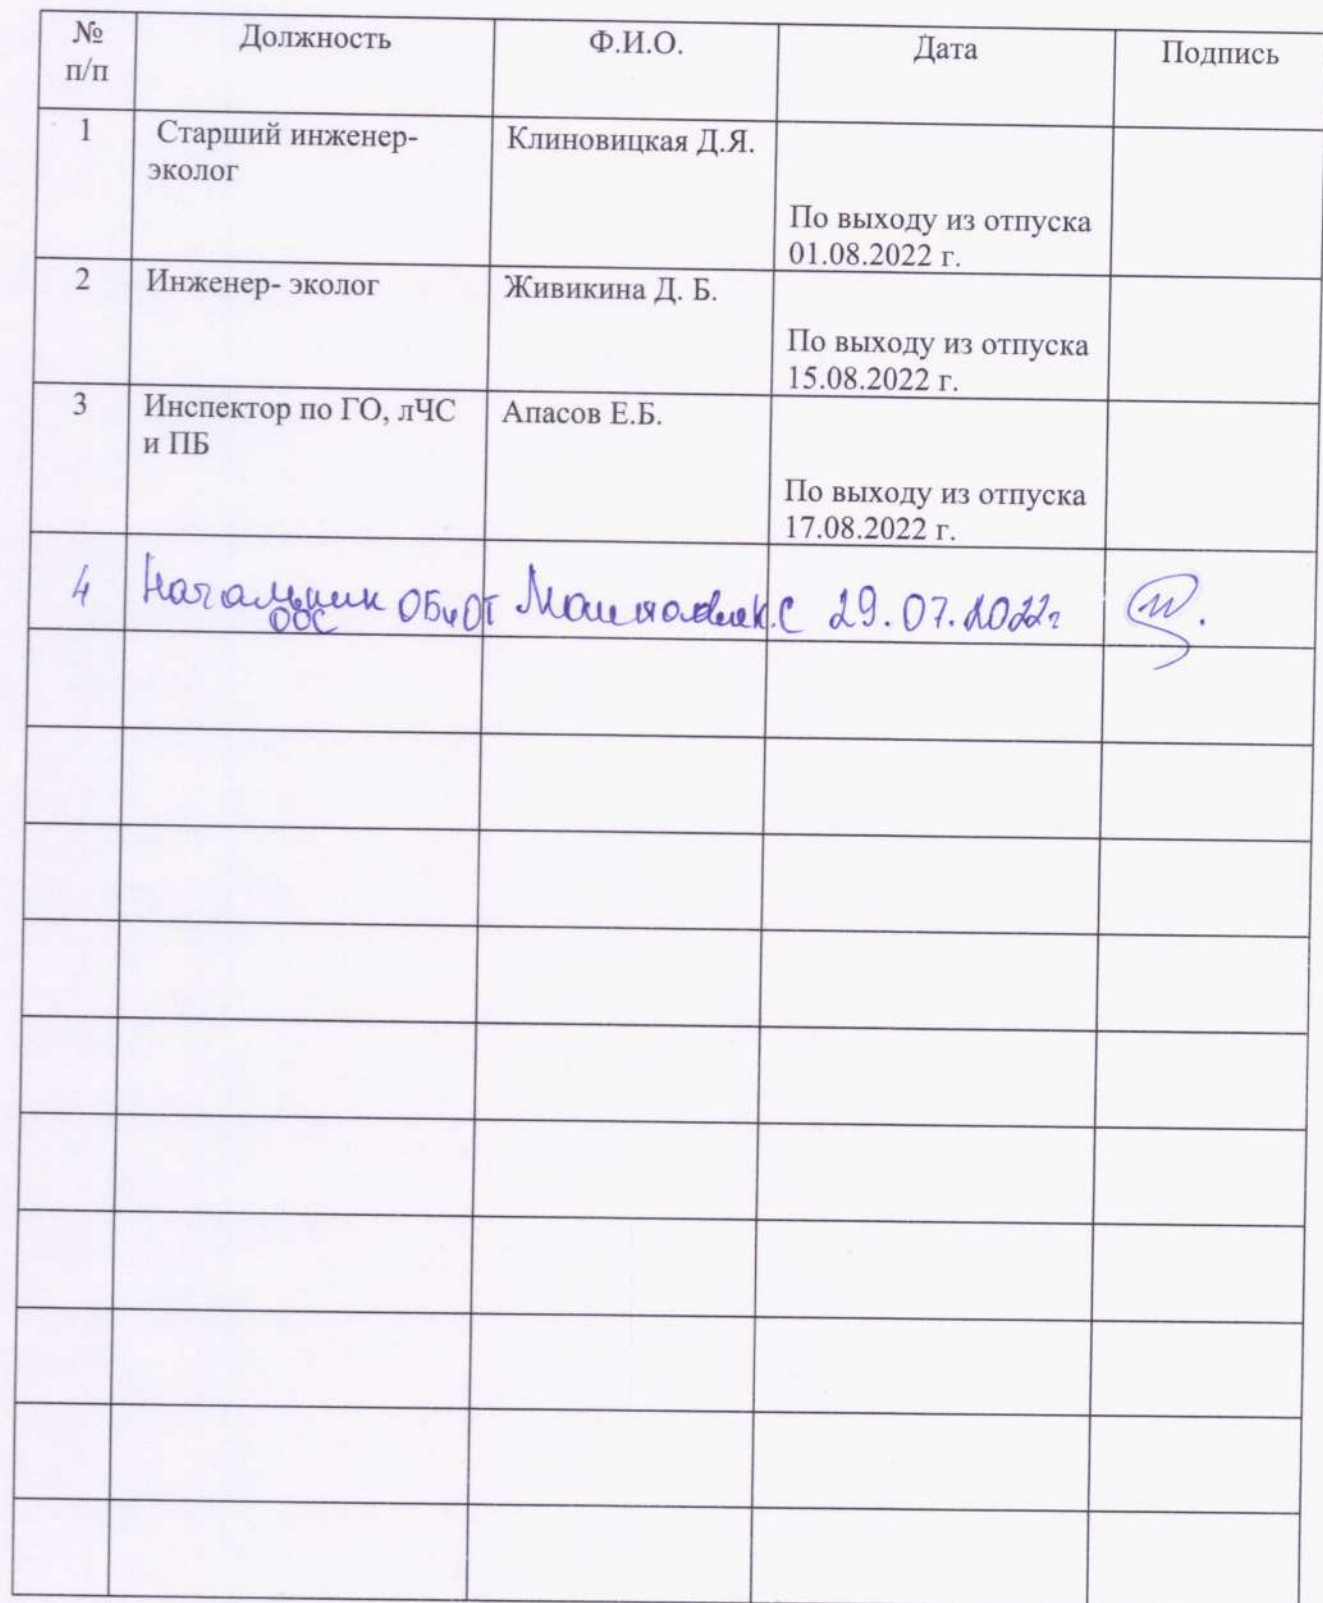 № п/п Должность Ф.И.О. Дата Подпись
1 Старший инженер- Клиновицкая Д.Я.
эколог
По выходу из отпуска
01.08.2022 г.
2 Инженер- эколог Живикина Д. Б.
По выходу из отпуска
15.08.2022 г.
3 Инспектор по ГО, лЧС Апасов Е.Б.
и ПБ
По выходу из отпуска
17.08.2022 г.
4 Начальник ОБиОТ К.С 29.07.2022г
ООС